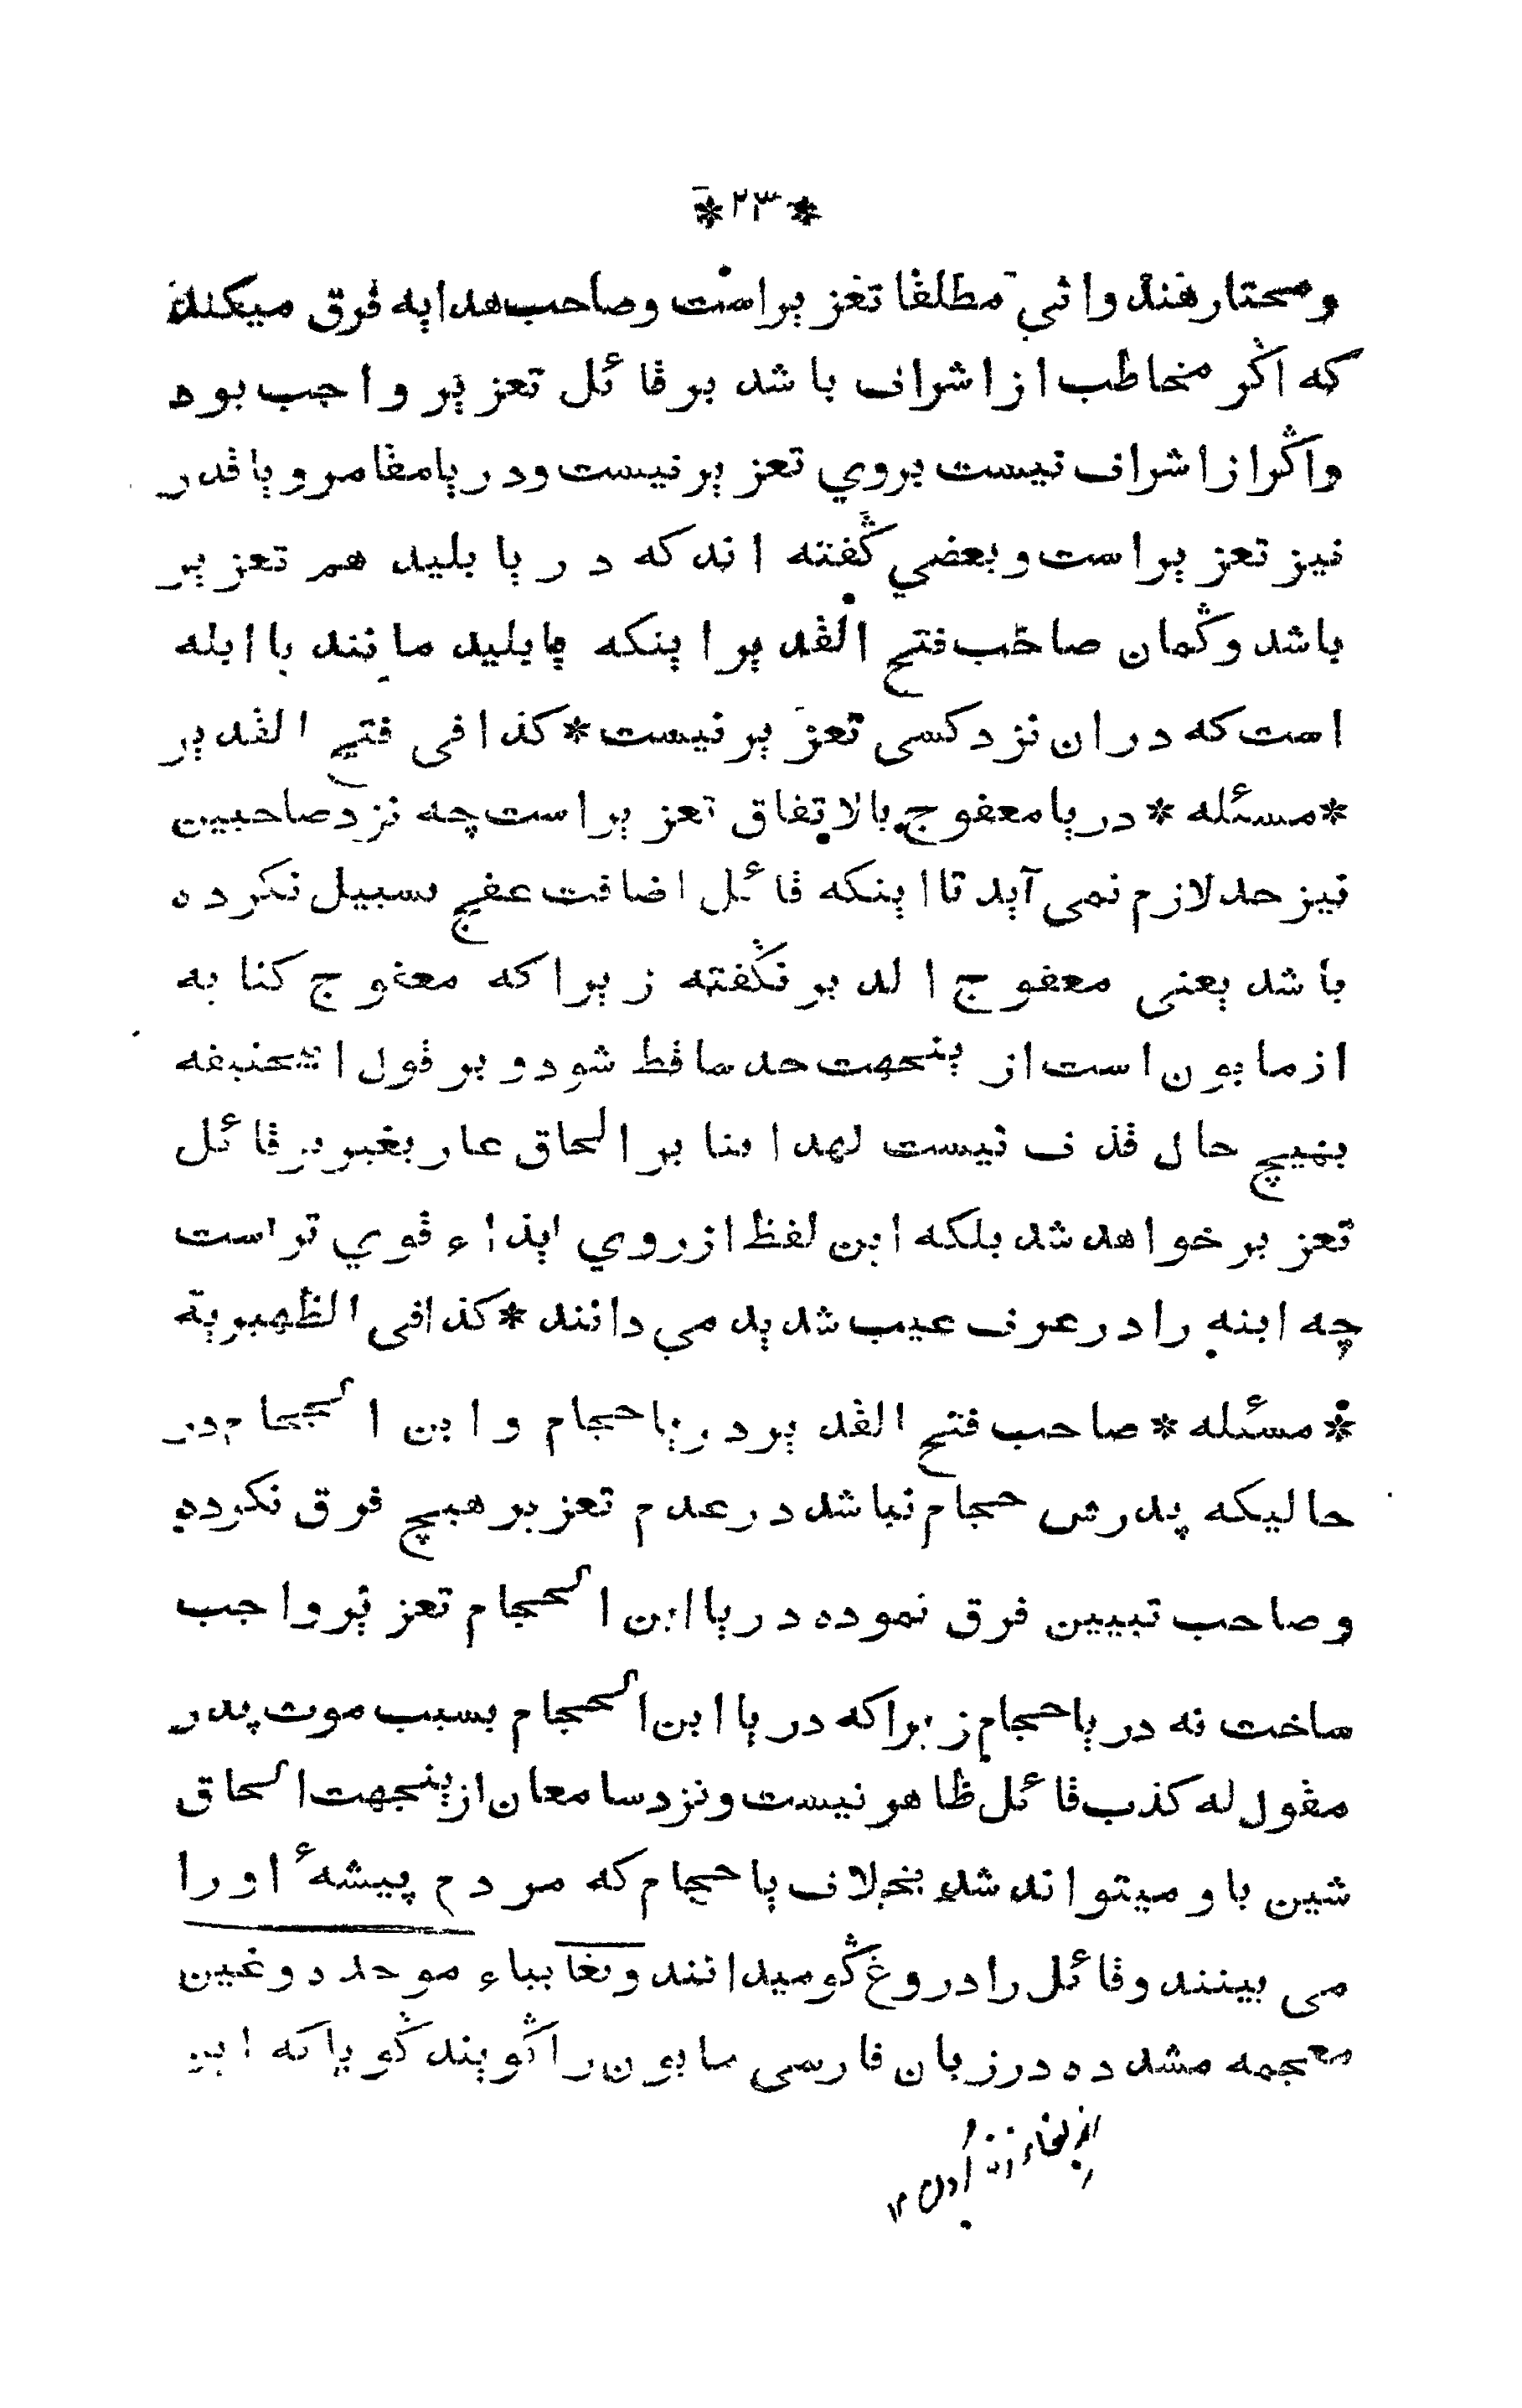 *۲۳*
ومختار هندواني مطلقا تعزيراست وصاحب هدايه فرق ميكند
كه اگر مخاطب از اشراف باشد بر قائل تعزير واجب بود
واگراز اشراف نيست بروي تعزير نيست ودر يا مقامر و يا قدر
نيز تعزيراست وبعضي گفته اند كه در يا بليد هم تعزير
باشد وگمان صاحب فتح القدير اينكه يا بليد مانند يا ابله
است كه دران نزد كسي تعزير نيست * كذا في فتح القدير
* مسئله * در يا معفوج بالاتفاق تعزيراست چه نزد صاحبين
نيز حد لازم نمي آيد تا اينكه قائل اضافت عفج بسبيل نكرده
باشد يعني معفوج الدبر نگفته زيراكه معفوج كنايه
از مابون است از ينجهت حد ساقط شود و بر قول ابيحنيفه
بهيچ حال قذف نيست لهذا بنا بر الحاق عار بغير بر قائل
تعزير خواهد شد بلكه اين لفظ از روي ايذاء قوي تر است
چه ابنه را در عرف عيب شديد مي دانند * كذا في الظهيرية
* مسئله * صاحب فتح القدير در يا حجام و ابن الحجام در
حاليكه پدرش حجام نباشد در عدم تعزير هيچ فرق نكرده
و صاحب تبيين فرق نموده در يا ابن الحجام تعزير واجب
ساخت نه در يا حجام زيراكه در يا ابن الحجام بسبب موت پدر
مقول له كذب قائل ظاهر نيست ونزد سامعان از ينجهت الحاق
شين با و ميتواند شد بخلاف يا حجام كه مردم پيشهٔ او را
مي بينند وقائل را دروغ گو ميدانند وبغا بباء موحد دوغين
معجمه مشدده در زبان فارسي مابون را گويند گويا كه اين